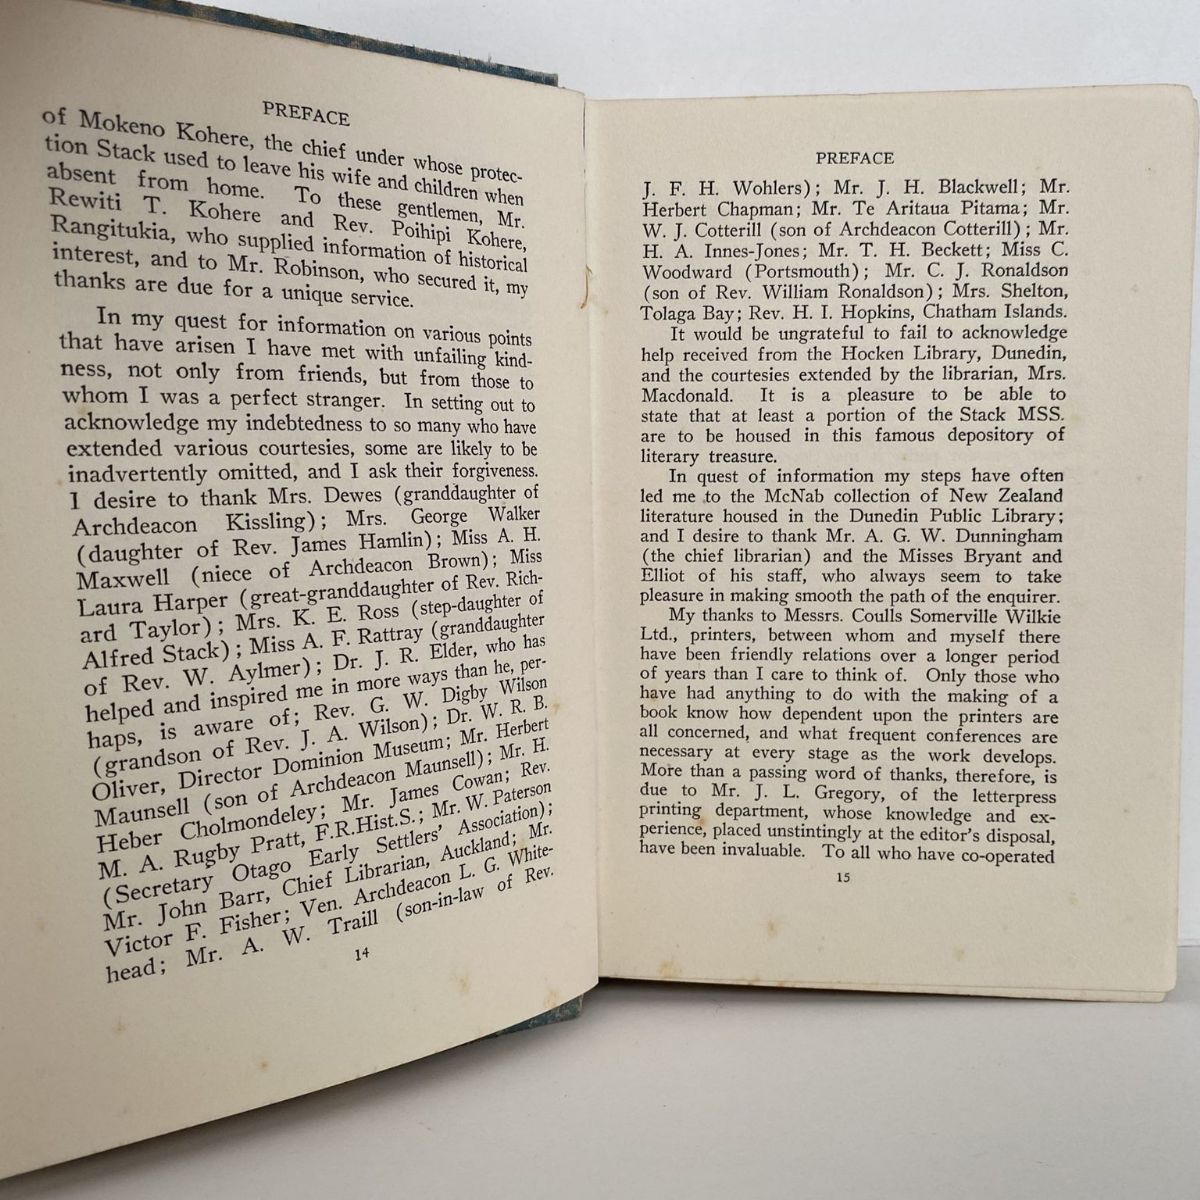 PREFACE
of Mokeno Kohere, the chief under whose protec-
tion Stack used to leave his wife and children when
absent from home. To these gentlemen, Mr.
Rewiti T. Kohere and Rev. Poihipi Kohere,
Rangitukia, who supplied information of historical
interest, and to Mr. Robinson, who secured it, my
thanks are due for a unique service.
In my quest for information on various points
that have arisen I have met with unfailing kind-
ness, not only from friends, but from those to
whom I was a perfect stranger. In setting out to
acknowledge my indebtedness to so many who have
extended various courtesies, some are likely to be
inadvertently omitted, and I ask their forgiveness.
I desire to thank Mrs. Dewes (granddaughter of
Archdeacon Kissling); Mrs. George Walker
(daughter of Rev. James Hamlin); Miss A. H.
Maxwell (niece of Archdeacon Brown); Miss
Laura Harper (great-granddaughter of Rev. Rich-
ard Taylor); Mrs. K. E. Ross (step-daughter of
Alfred Stack); Miss A. F. Rattray (granddaughter
of Rev. W. Aylmer); Dr. J. R. Elder, who has
helped and inspired me in more ways than he, per-
haps, is aware of; Rev. G. W. Digby Wilson
(grandson of Rev. J. A. Wilson); Dr. W. R. B.
Oliver, Director Dominion Museum; Mr. Herbert
Maunsell (son of Archdeacon Maunsell); Mr. H.
Heber Cholmondeley; Mr. James Cowan; Rev.
M. A. Rugby Pratt, F.R.Hist.S.; Mr. W. Paterson
(Secretary Otago Early Settlers' Association);
Mr. John Barr, Chief Librarian, Auckland; Mr.
Victor F. Fisher; Ven. Archdeacon L. G. White-
head; Mr. A. W. Traill (son-in-law of Rev.
14
PREFACE
J. F. H. Wohlers); Mr. J. H. Blackwell; Mr.
Herbert Chapman; Mr. Te Aritaua Pitama; Mr.
W. J. Cotterill (son of Archdeacon Cotterill); Mr.
H. A. Innes-Jones; Mr. T. H. Beckett; Miss C.
Woodward (Portsmouth); Mr. C. J. Ronaldson
(son of Rev. William Ronaldson); Mrs. Shelton,
Tolaga Bay; Rev. H. I. Hopkins, Chatham Islands.
It would be ungrateful to fail to acknowledge
help received from the Hocken Library, Dunedin,
and the courtesies extended by the librarian, Mrs.
Macdonald. It is a pleasure to be able to
state that at least a portion of the Stack MSS.
are to be housed in this famous depository of
literary treasure.
In quest of information my steps have often
led me to the McNab collection of New Zealand
literature housed in the Dunedin Public Library;
and I desire to thank Mr. A. G. W. Dunningham
(the chief librarian) and the Misses Bryant and
Elliot of his staff, who always seem to take
pleasure in making smooth the path of the enquirer.
My thanks to Messrs. Coulls Somerville Wilkie
Ltd., printers, between whom and myself there
have been friendly relations over a longer period
of years than I care to think of. Only those who
have had anything to do with the making of a
book know how dependent upon the printers are
all concerned, and what frequent conferences are
necessary at every stage as the work develops.
More than a passing word of thanks, therefore, is
due to Mr. J. L. Gregory, of the letterpress
printing department, whose knowledge and ex-
perience, placed unstintingly at the editor's disposal,
have been invaluable. To all who have co-operated
15